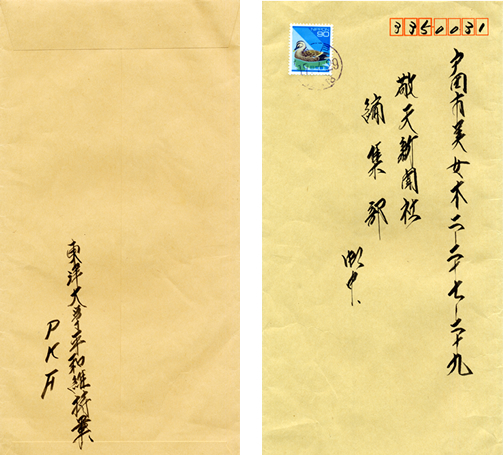 東洋大学平和維持軍
PKF
NIPPON
80
3350031
戸田市美女木二-二十七-二十九
敬天新聞社
編集部 御中